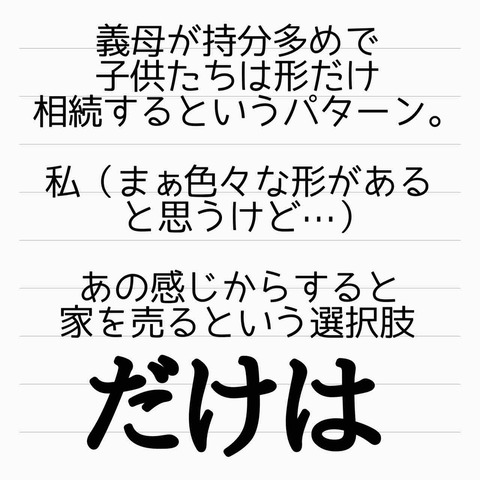 義母が持分多めで
子供たちは形だけ
相続するというパターン。
私（まぁ色々な形がある
と思うけど…）
あの感じからすると
家を売るという選択肢
だけは